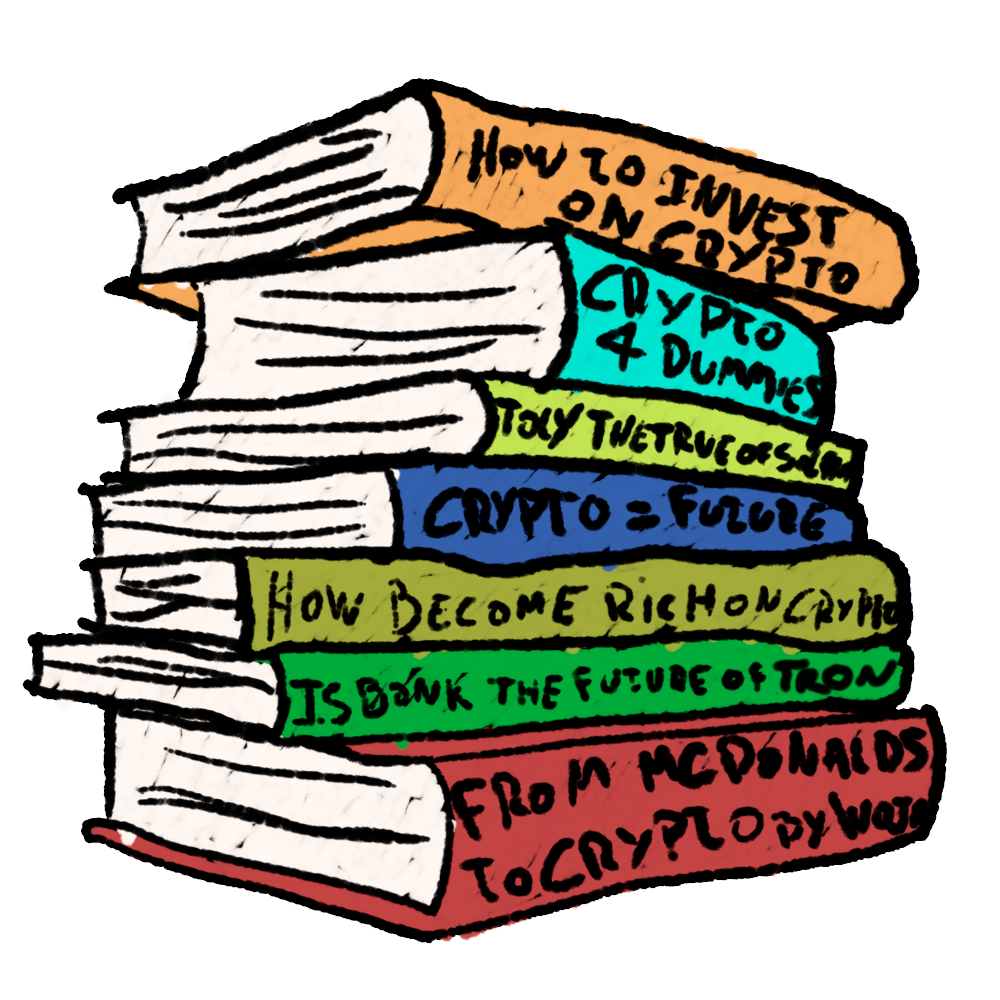 HOW TO INVEST
ON CRYPTO
CRYPTO
4 DUMMIES
TOLY THE TRUE OF
CRYPTO = FUTURE
HOW BECOME RICH ON CRYPTO
IS BONK THE FUTURE OF TRON
FROM MCDONALDS
TO CRYPTO BY